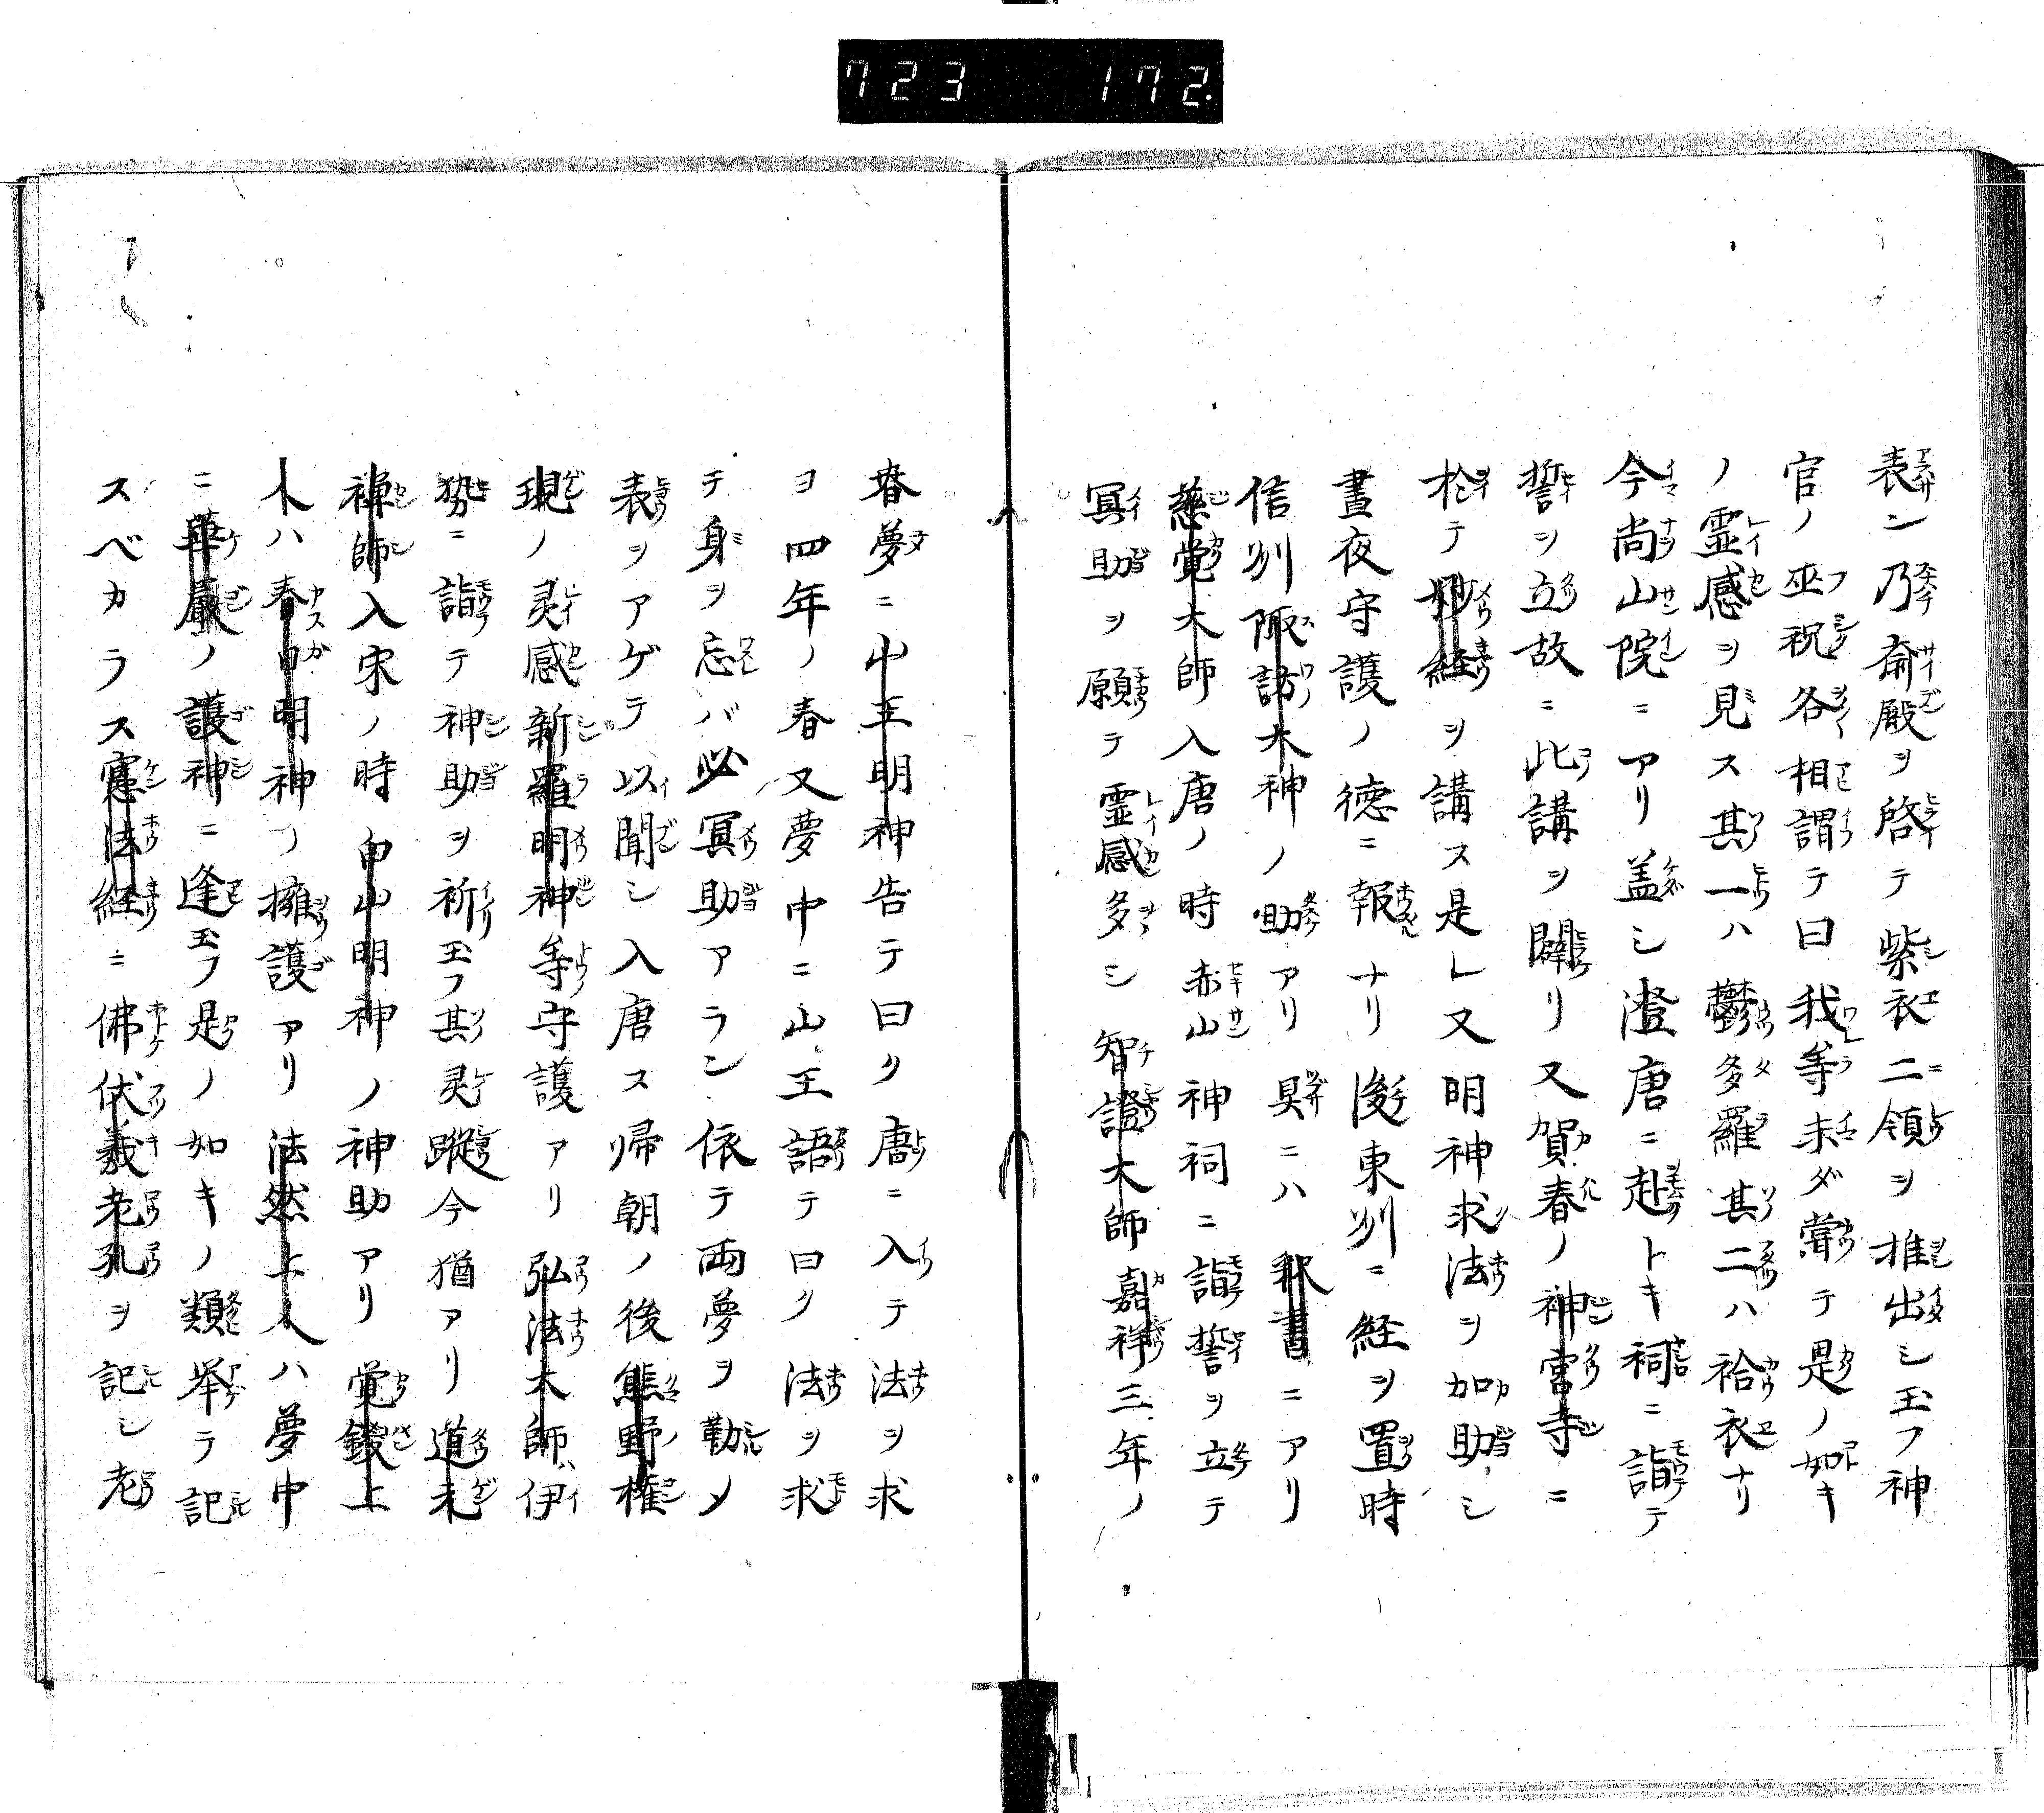 723 172.
表ン乃斎殿ヲ啓テ紫衣二領ヲ推出シ玉フ神
官ノ巫祝各相謂テ曰我等未ダ嘗テ是ノ如キ
ノ霊感ヲ見ス其一ハ欝多羅其二ハ袷衣ナリ
今尚山院ニアリ盖シ澄唐ニ赴トキ祠ニ詣テ
誓ヲ立故ニ此講ヲ闢リ又賀春ノ神宮寺ニ
於テ妙経ヲ講ス是レ又明神求法ヲ加助シ
晝夜守護ノ徳ニ報ナリ後東州ニ経ヲ置時
信州陬訪大神ノ助アリ具ニハ釈書ニアリ
慈覚大師入唐ノ時赤山神祠ニ詣誓ヲ立テ
冥助ヲ願テ霊感多シ智證大師嘉祥三年ノ
春夢ニ山王明神告テ曰ク唐ニ入テ法ヲ求
ヨ四年ノ春又夢中ニ山王語テ曰ク法ヲ求
テ身ヲ忘バ必冥助アラン依テ両夢ヲ勒メ
表ヲアゲテ以聞シ入唐ス帰朝ノ後熊野権
現ノ灵感新羅明神等守護アリ弘法大師ハ伊
勢ニ詣テ神助ヲ祈玉フ其灵蹤今猶アリ道元
禅師入宋ノ時白山明神ノ神助アリ覚鑁上
人ハ春日明神ノ擁護アリ法然上人ハ夢中
ニ華嚴ノ護神ニ逢玉フ是ノ如キノ類挙テ記
スベカラス憲法経ニ佛伏羲老孔ヲ記シ老